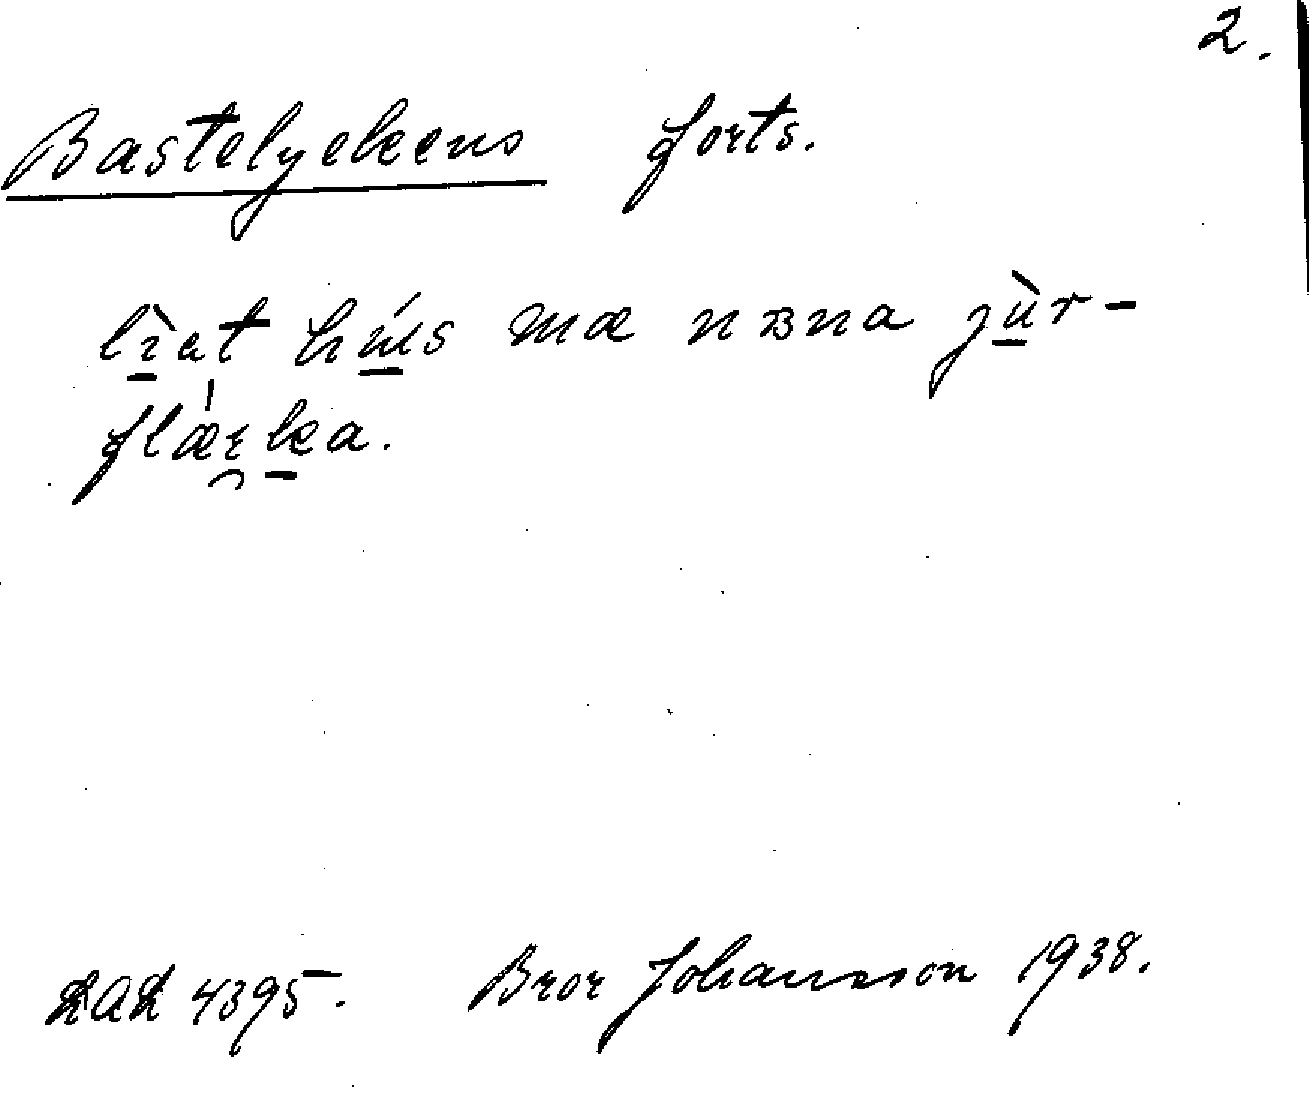 2.
Bastelyckens forts.
lìat hús mæ nɜna jùr-
flærka.
LAL 4395. Bror Johansson 1938.